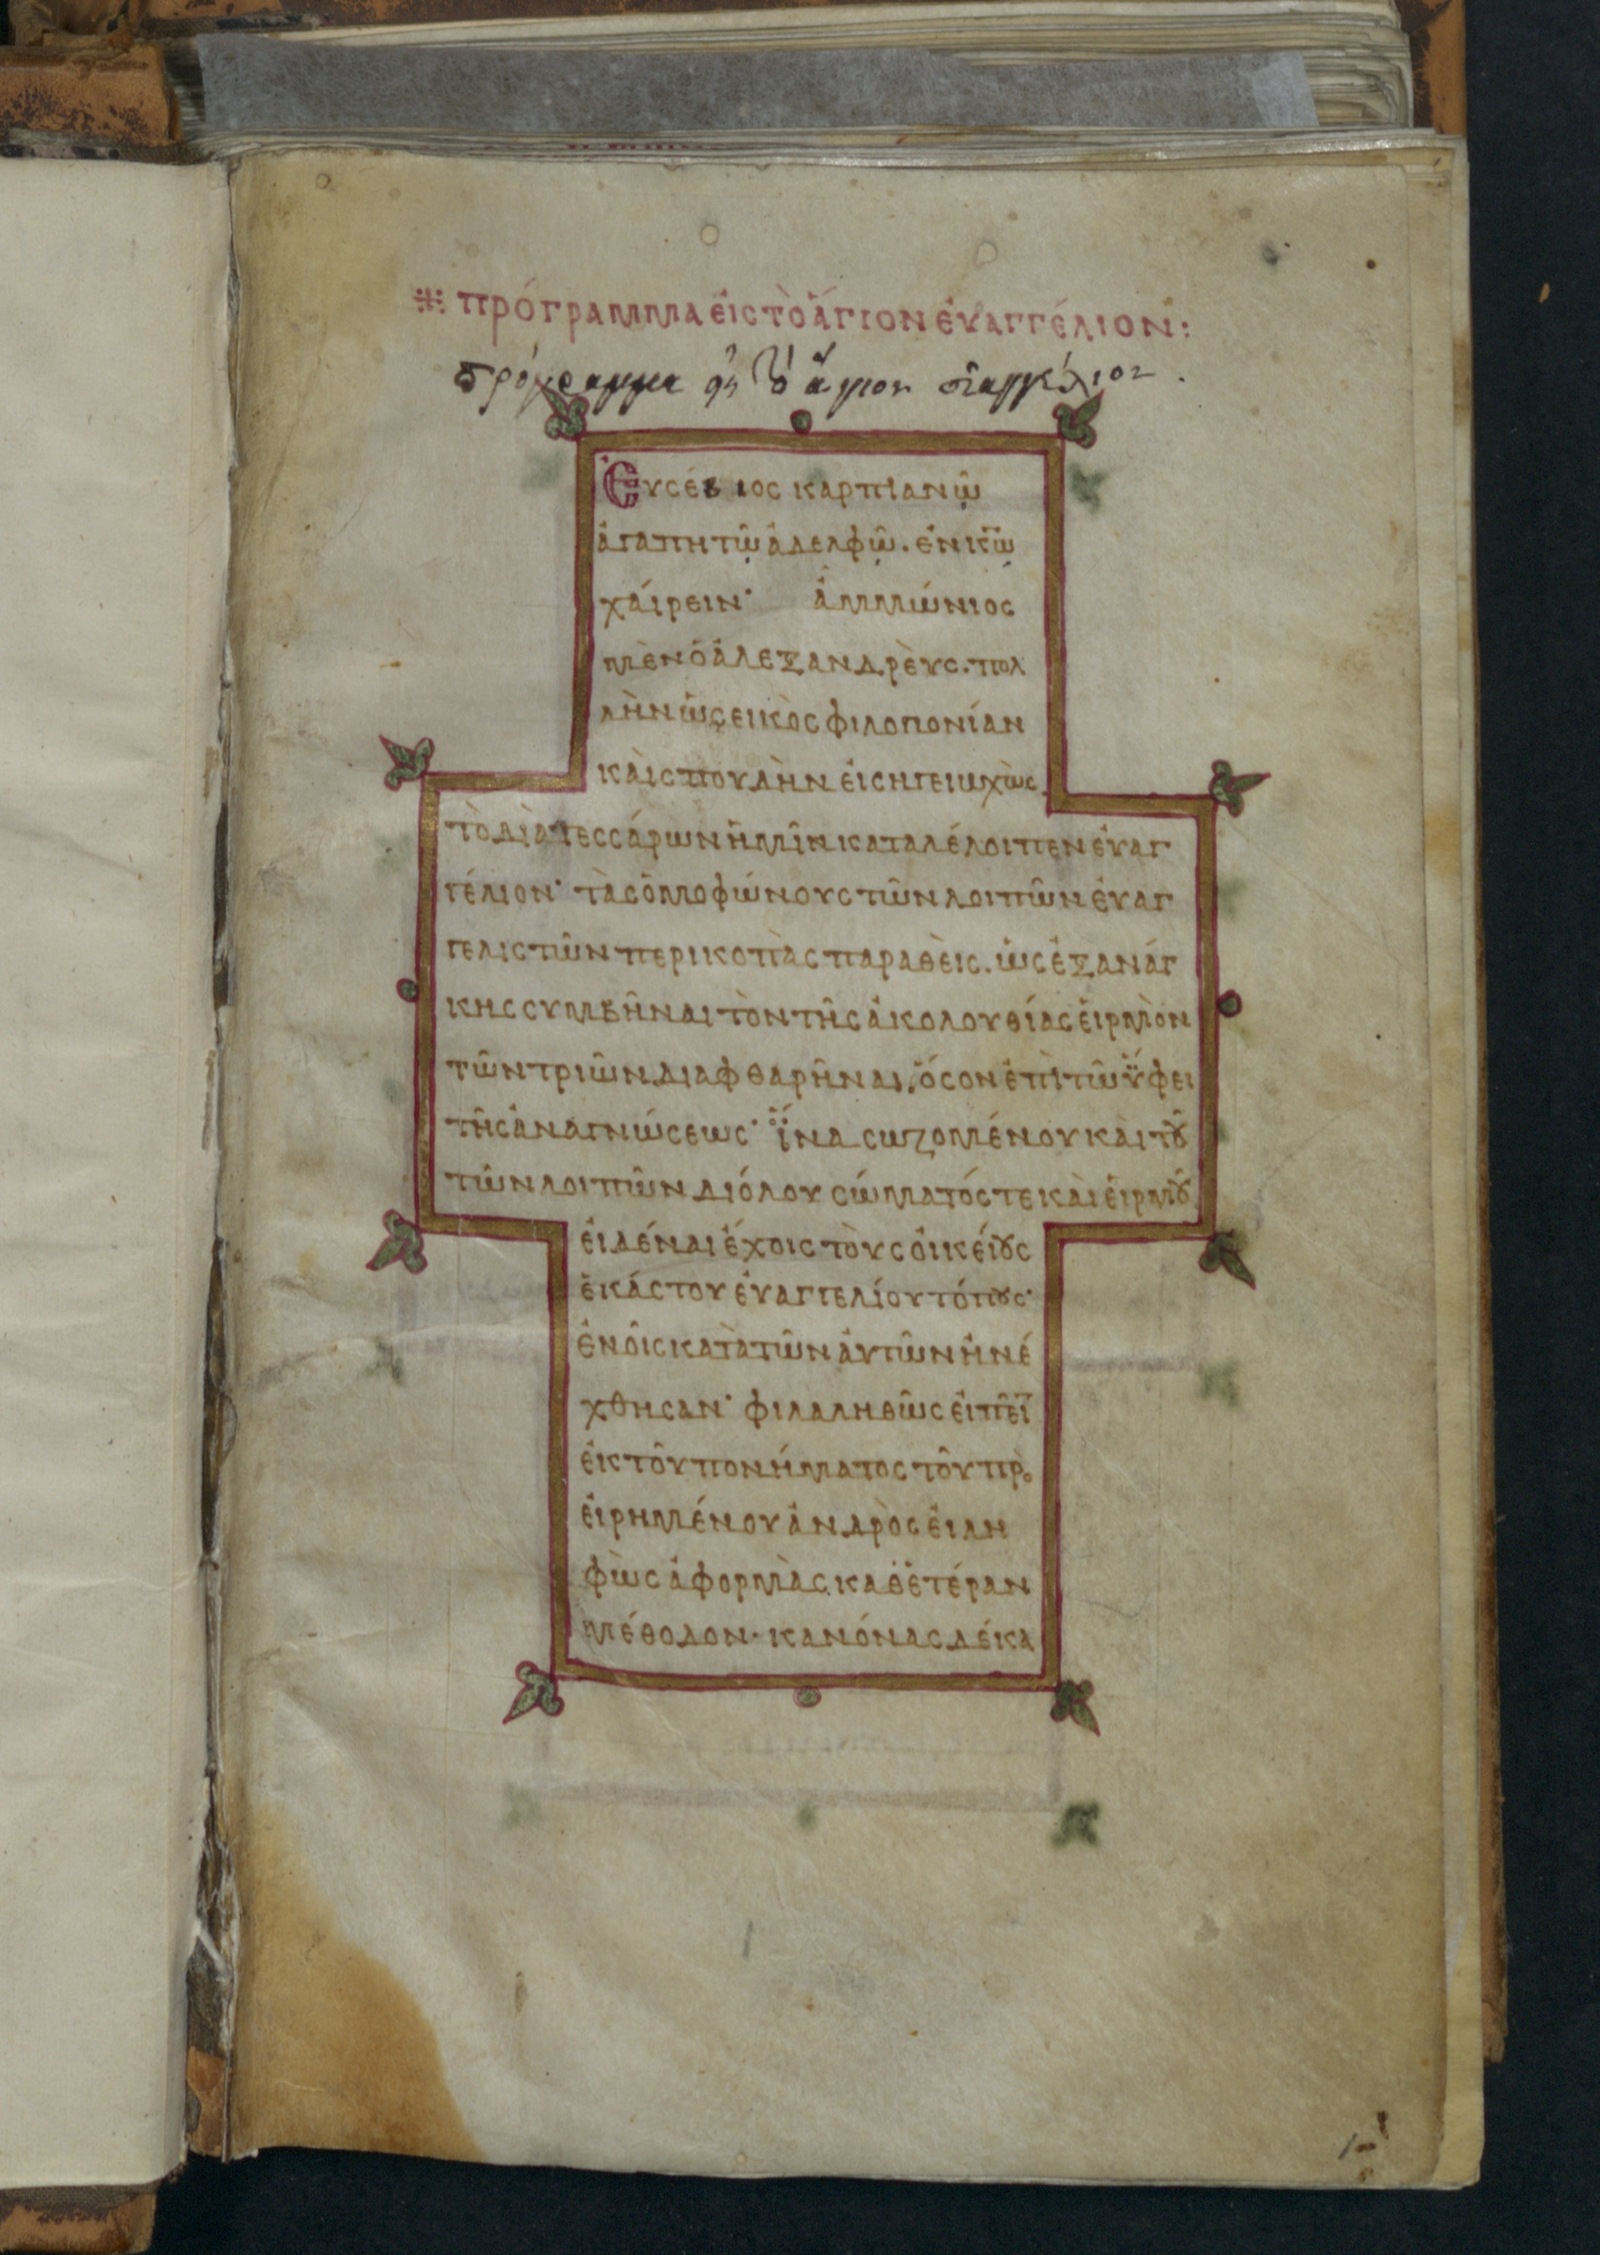 ※ πρόγραμμα εἰς τὸ ἅγιον ἐυαγγέλιον:
πρόγραμμα εἰς τὸ ἅγιον εὐαγγέλιον.
Ἐυσέβιος καρπιανῷ
ἀγαπητῷ ἀδελφῷ. ἐν κ̅ω̅
χάιρειν· ἀμμώνιος
μὲν ὁ ἀλεξανδρὲυς. πολ
λὴν ὡς εικὸς φιλοπονίαν
κὰι σπουδὴν ἐισηγειωχὼς
τὸ διὰ τεσσάρων ἡμῖν καταλέλοιπεν ἐυαγ
γέλιον· τὰς ὁμοφώνους τῶν λοιπῶν ἐυαγ
γελιστῶν περικοπὰς παραθὲις. ὡς ἐξ ανάγ
κης συμβῆναι τὸν τῆς ἀκολουθίας ἑιρμὸν
τῶν τριῶν διαφθαρῆναι, ὅσον ἐπὶ τῶ ὕφει
τῆς ἀναγνώσεως· ἵνα σωζομένου κὰι τοῦ
τῶν λοιπῶν διόλου σώματός τε κὰι ἑιρμοῦ
ἐιδέναι ἔχοις τὸυς ὀικέιους
ἑκάστου ἐυαγγελίου τόπους·
ἐν ὁις κατὰ τῶν ἀυτῶν ἠνέ
χθησαν· φιλαληθῶς ἐιπεῖ̅
ἐκ τοῦ πονήματος τοῦ προ
ἐιρημένου ἀνδρὸς ἐιλη
φὼς ἀφορμὰς. καθ ἑτέραν
μέθοδον· κανόνας δέκα
1